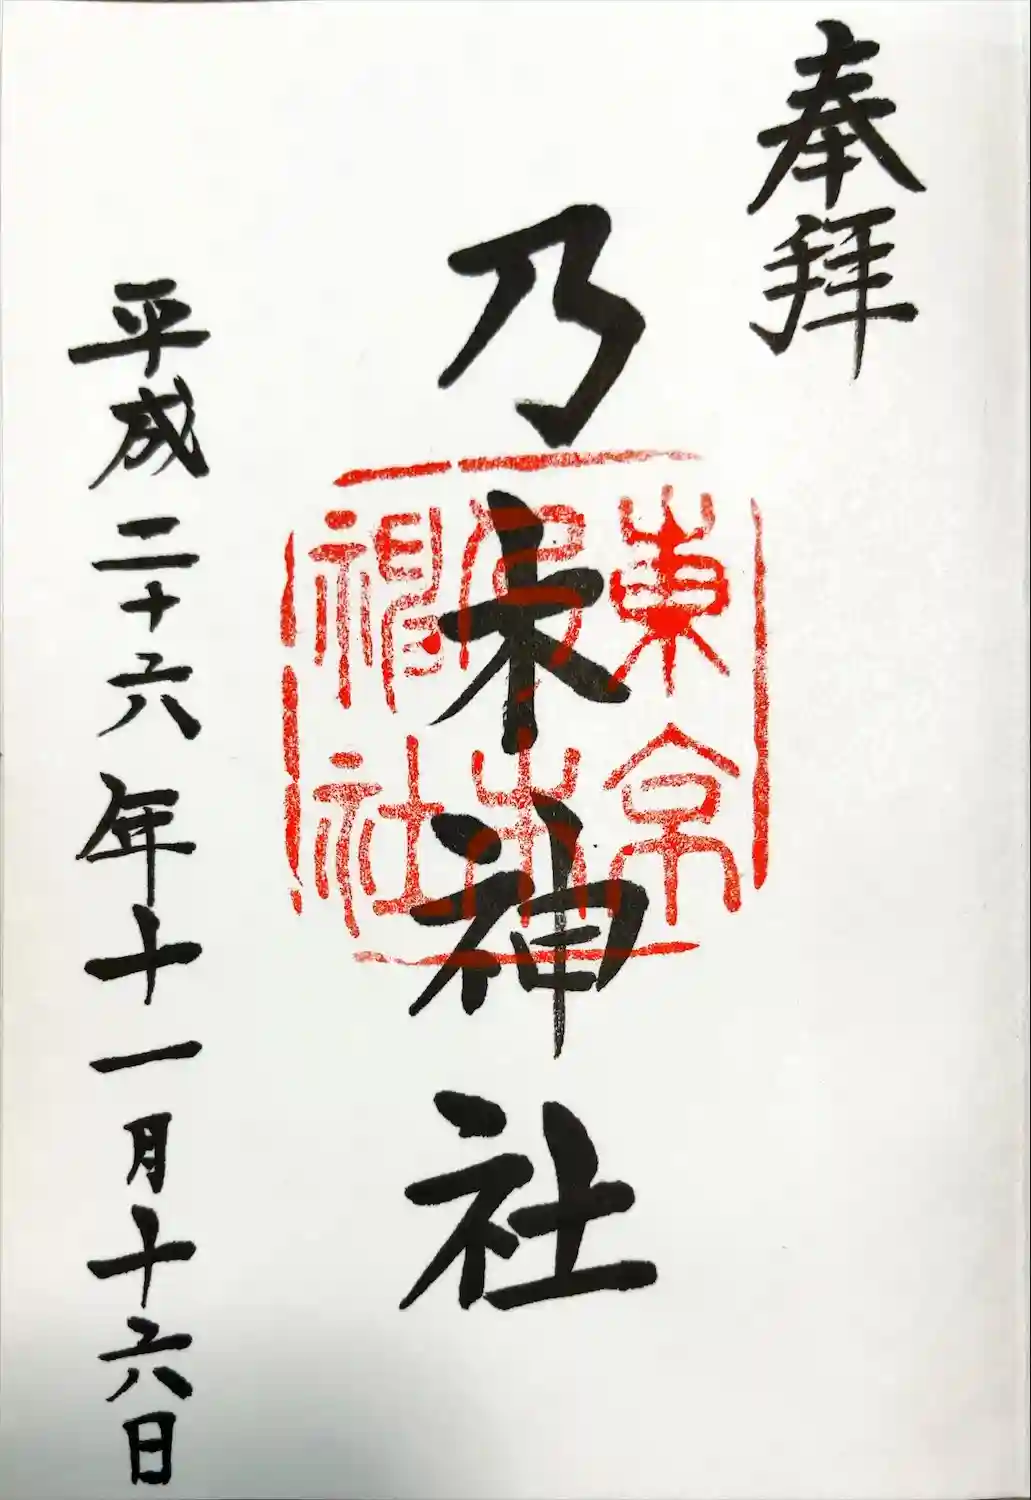 奉拝
乃木神社
東京
乃木
神社
平成二十六年十一月十六日